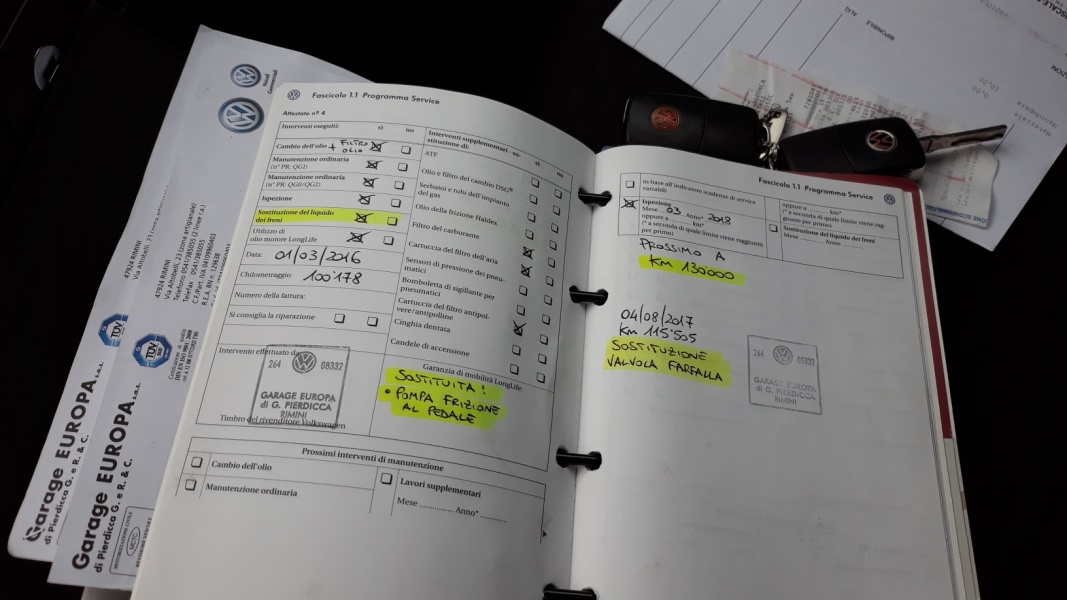 Fascicolo 1.1 Programma Service
Attestato nº 4
Interventi eseguiti: si no
Cambio dell'olio + FILTRO OLIO
Manutenzione ordinaria
(nº PR: QG1)
Manutenzione ordinaria
(nº PR: QG0/QG2)
Ispezione
Sostituzione del liquido
dei freni
Utilizzo di
olio motore LongLife
Data: 01/03/2016
Chilometraggio: 100'178
Numero della fattura:
Si consiglia la riparazione
Intervento effettuato da
264 08332
GARAGE EUROPA
di G. PIERDICCA
RIMINI
Timbro del rivenditore Volkswagen
Interventi supplementari - so-
stituzione di: si no
ATF
Olio e filtro del cambio DSG®
Serbatoi e tubi dell'impianto
del gas
Olio della frizione Haldex
Filtro del carburante
Cartuccia del filtro dell'aria
Sensori di pressione dei pneu-
matici
Bomboletta di sigillante per
pneumatici
Cartuccia del filtro antipol-
vere/antipolline
Cinghia dentata
Candele di accensione
Garanzia di mobilità LongLife:
SOSTITUITA!
• POMPA FRIZIONE
AL PEDALE
Prossimi interventi di manutenzione
Cambio dell'olio
Manutenzione ordinaria
Lavori supplementari
Mese .............. Anno* ..........
Fascicolo 1.1 Programma Service
in base all'indicatore scadenze di service
variabili
Ispezione
Mese 03 Anno 2018
oppure a .......... km*
(* a seconda di quale limite viene raggiunto
per primo)
oppure a .......... km*
(* a seconda di quale limite viene rag-
giunto per primo)
Sostituzione del liquido dei freni
Mese ........ Anno
PROSSIMO A
KM 130'000
04/08/2017
KM 115'505
SOSTITUZIONE
VALVOLA FARFALLA
264 08332
GARAGE EUROPA
di G. PIERDICCA
RIMINI
Garage EUROPA s.a.s.
di Pierdicca G. e R. & C.
Garage EUROPA s.a.s.
di Pierdicca G. e R. & C.
47924 RIMINI
Via Altobelli, 23 (zona artigianale)
Telefono 0541/385055 (2 linee r.a.)
Telefax 0541/385055
TÜV
TÜV
MCTC
IMPONIBILE